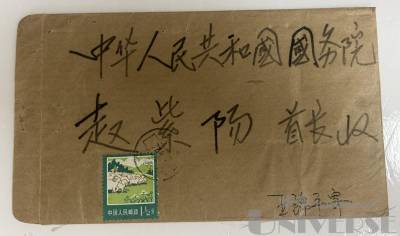 中华人民共和國國务院
赵 紫 阳 首长收
中国人民邮政 1½分
UNIVERSE